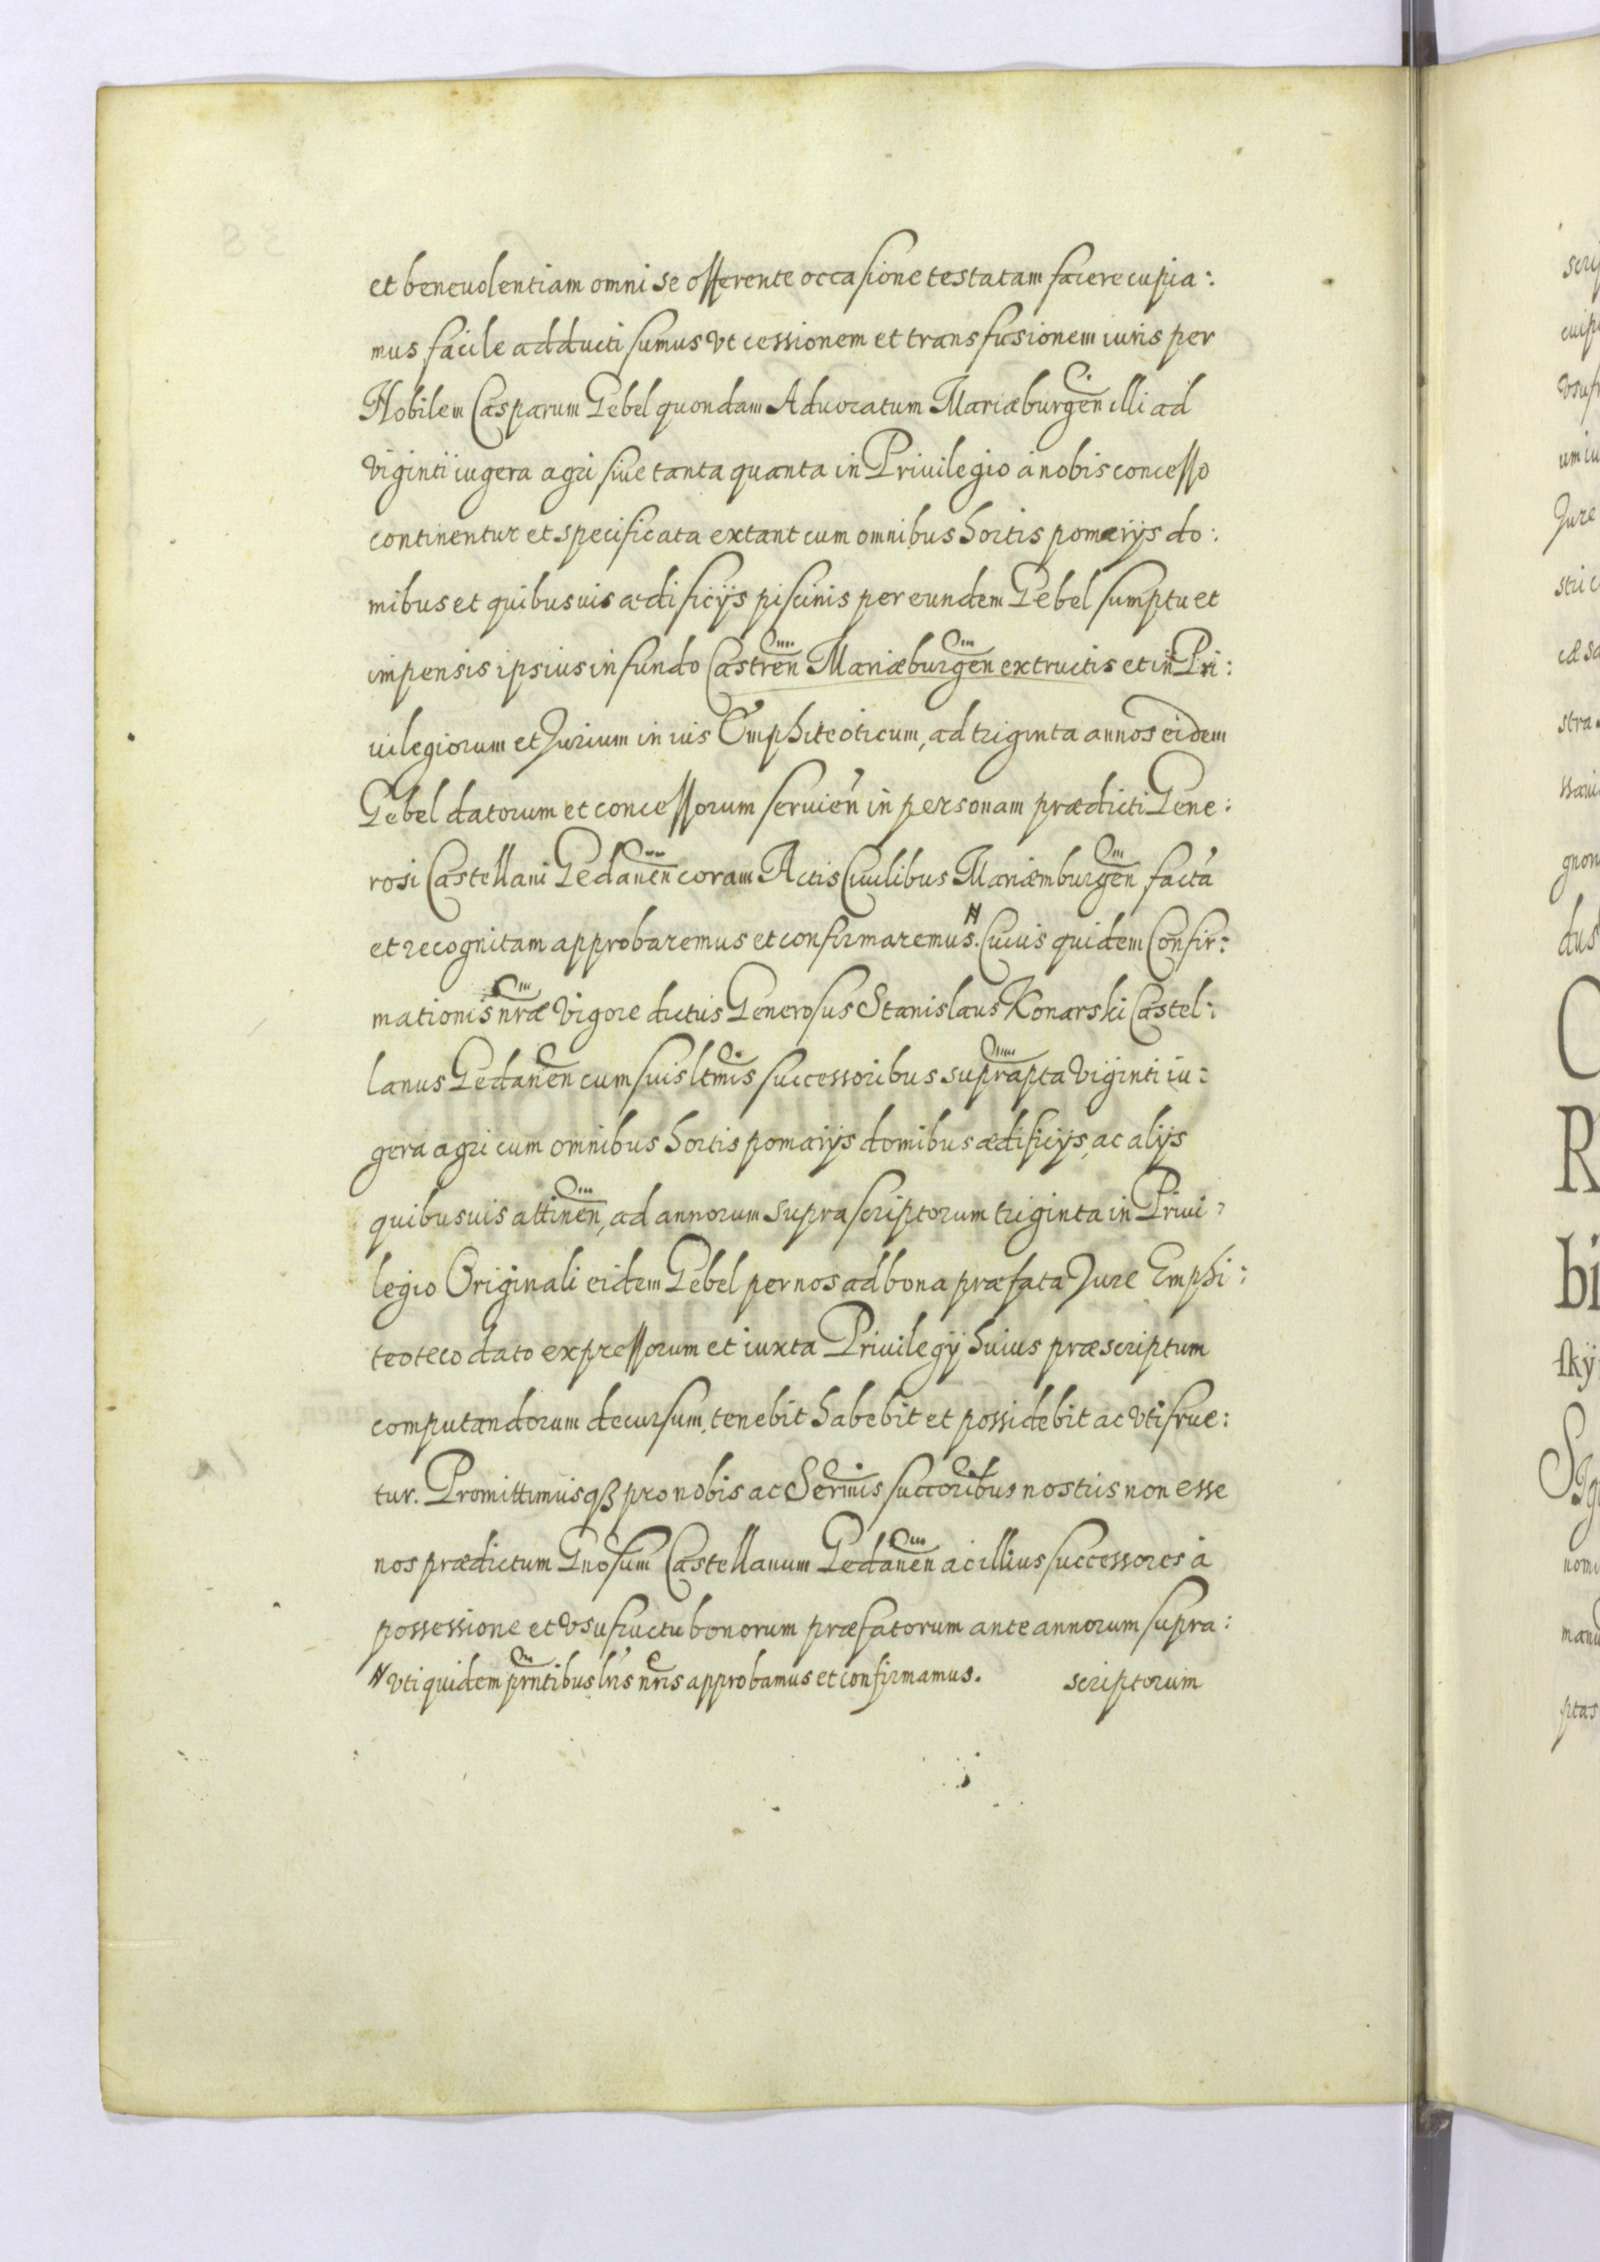 et beneuolentiam omni se offerente occasione testatam facere cupia:
mus facile adducti sumus vt cessionem et transfusionem iuris per
Nobilem Casparum Gebel quondam Aduocatum Mariæburgen̄ illi ad
viginti iugera agri siue tanta quanta in Privilegio à nobis concesso
continentur et specificata extant cum omnibus hortis pomærijs do:
mibus et quibusuis ædificijs piscinis per eundem Gebel sumptu et
impensis ipsius in fundo Castren̄ Mariæburgen̄ extructis et in Pri:
uilegiorum et Jurium in ius Emphiteoticum, ad triginta annos eidem
Gebel datorum et concessorum seruien̄ in personam prædicti Gene:
rosi Castellani Gedanen̄ coram Actis Ciuilibus Mariæmburgen̄ factā
et recognitam approbaremus et confirmaremus.# Cuius quidem Confir:
mationis nr̄æ vigore dictus Generosus Stanislaus Konarski Castel:
lanus Gedanen̄ cum suis ltm̄is successoribus suprapta viginti iu:
gera agri cum omnibus hortis pomærijs domibus ædificijs, ac alijs
quibusuis attinen̄, ad annorum suprascriptorum triginta in Priui:
legio Originali eidem Gebel per nos ad bona præfata Jure Emphi:
teoteco dato expressorum et iuxta Priuilegij huius præscriptum
computandorum decursum, tenebit habebit et possidebit ac vtifrue:
tur. Promittimusqß pro nobis ac Serm̄is succoribus nostris non esse
nos prædictum Gnosum Castellanum Gedanen̄ ac illius successores à
possessione et vsufructu bonorum præfatorum ante annorum supra:
# vti quidem prn̄tibus lr̄is nr̄is approbamus et confirmamus. scriptorum